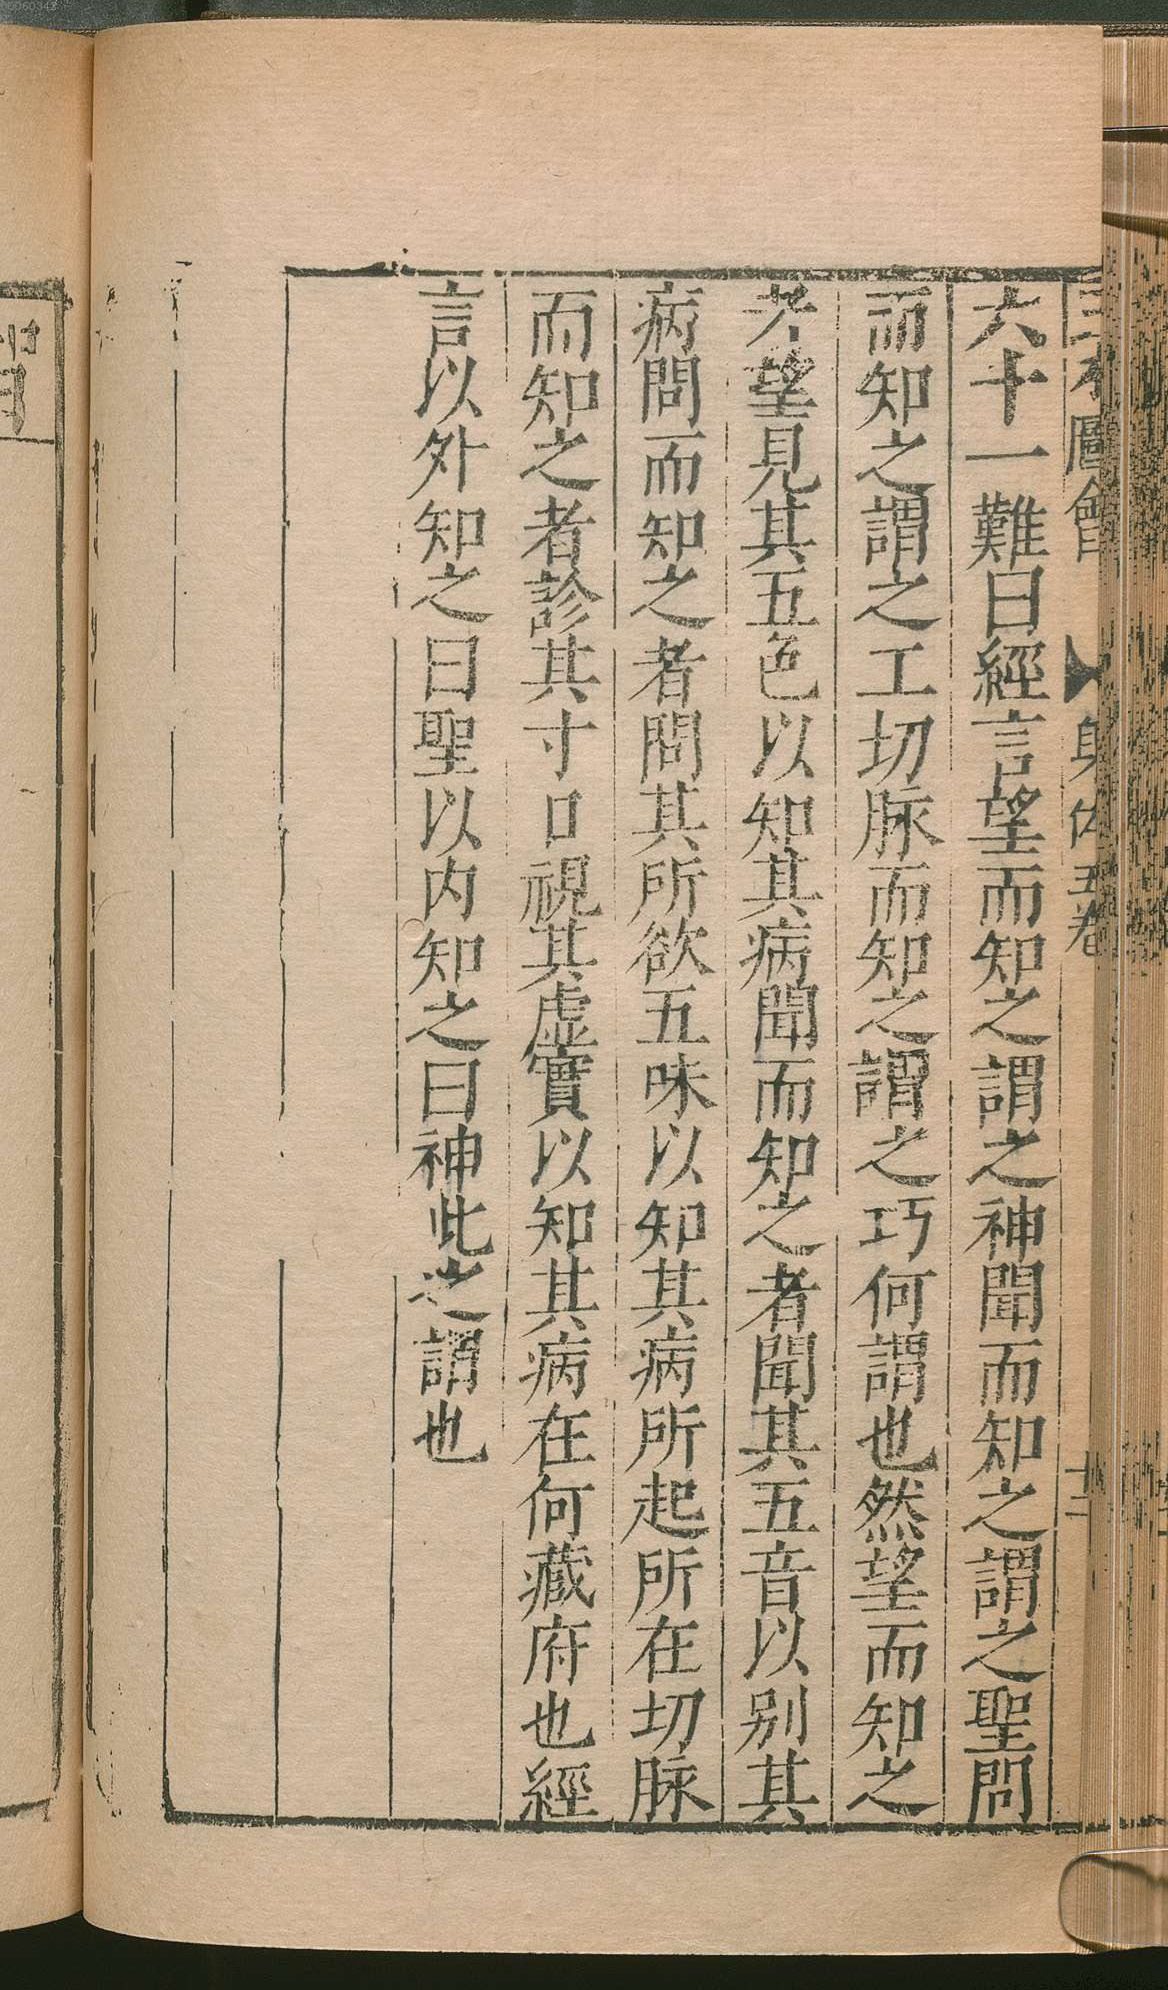 六十一難曰經言望而知之謂之神聞而知之謂之聖問
而知之謂之工切脉而知之謂之巧何謂也然望而知之
者望見其五色以知其病聞而知之者聞其五音以別其
病問而知之者問其所欲五味以知其病所起所在切脉
而知之者診其寸口視其虛實以知其病在何藏府也經
言以外知之曰聖以内知之曰神此之謂也
三才圖會
身体五卷
十二